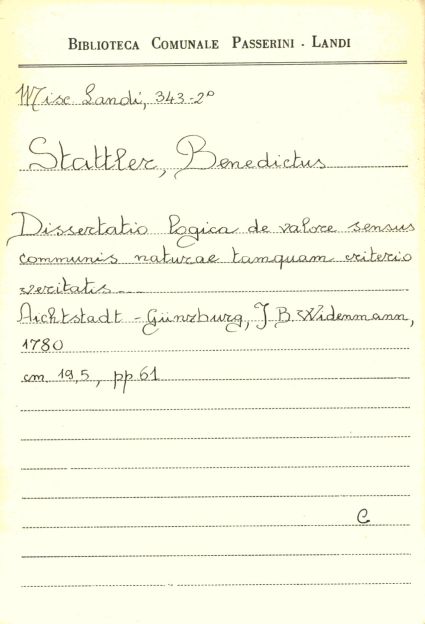 BIBLIOTECA COMUNALE PASSERINI - LANDI
Misc Landi, 343-2°
Stattler, Benedictus
Dissertatio logica de valore sensus
communis naturae tamquam criterio
veritatis...
Aichtstadt - Günzburg, J B. Widenmann,
1780
cm 19,5, pp 61
C